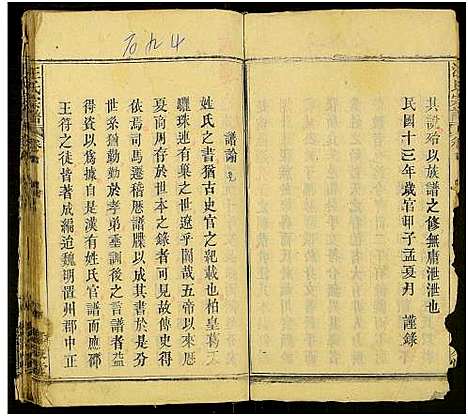 其諸給以族譜之修無庸泄泄也
民國十三年歲官甲子孟夏月　謹錄
譜論
姓氏之書猶古史官之紀載也柏皇葛天
驪珠連有巢之世遼乎闊哉五帝以來厯
夏商周於世本之錄者可見故傳史得
依焉司馬遷稽厯譜牒以成其書於是分
世系猶勤勤於孝弟垂訓後之言譜者益
得資以爲據自是漢有姓氏官譜而應邵
王符之徒皆著成編迨魏明置州郡中正
汪氏宗譜